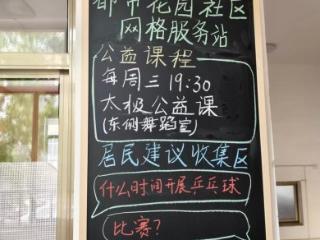 都市花园社区
网格服务站
公益课程
每周三19:30
太极公益课
(东侧舞蹈室)
居民建议收集区
什么时间开展乒乓球
比赛?